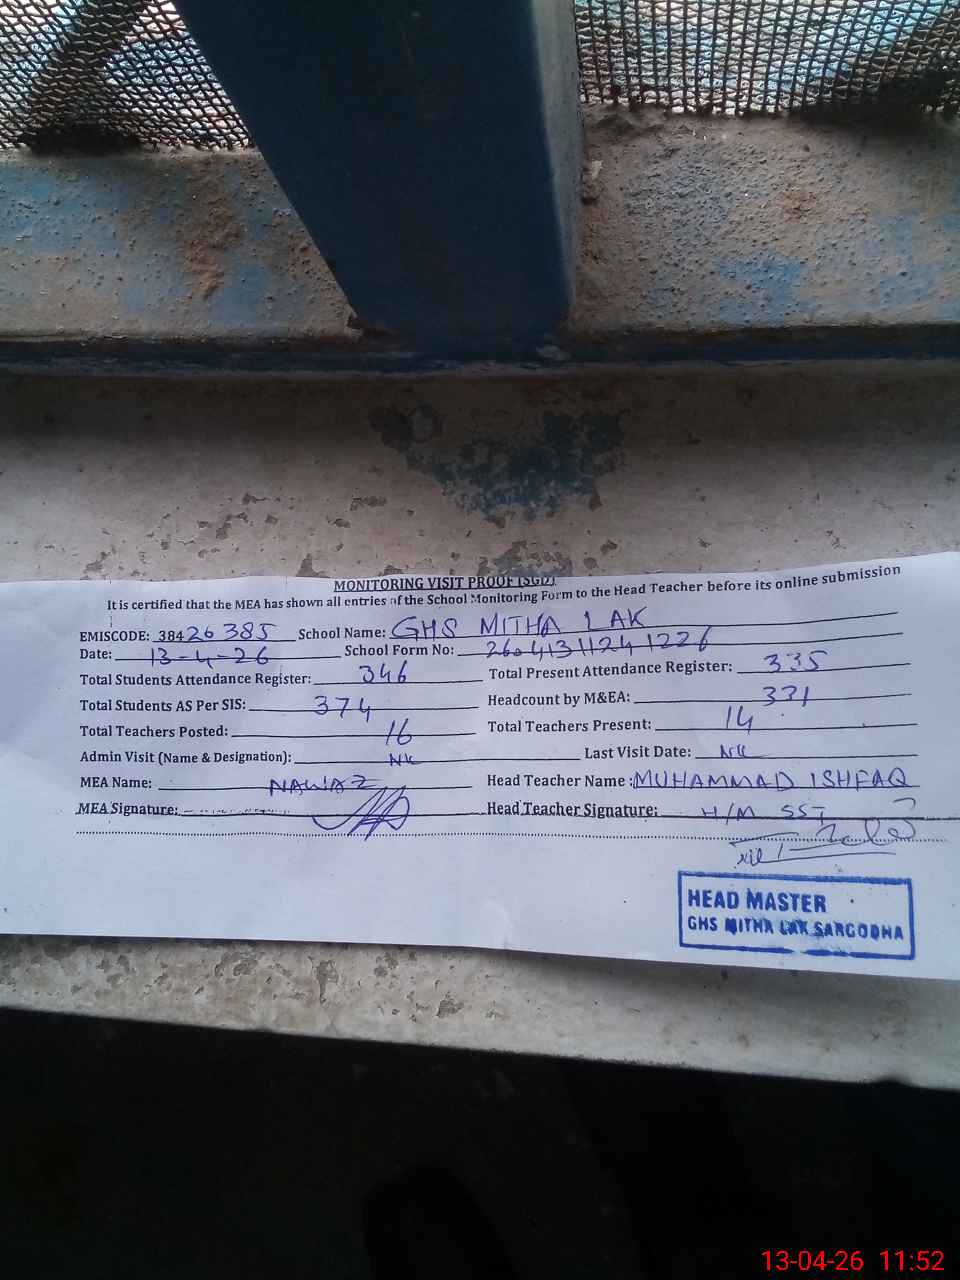 MONITORING VISIT PROOF (SGD)
It is certified that the MEA has shown all entries of the School Monitoring Form to the Head Teacher before its online submission
EMISCODE: 38426385 School Name: GHS MITHA LAK
Date: 13-4-26 School Form No: 2604131124 1226
Total Students Attendance Register: 346 Total Present Attendance Register: 335
Total Students AS Per SIS: 374 Headcount by M&EA: 331
Total Teachers Posted: 16 Total Teachers Present: 14
Admin Visit (Name & Designation): NIL Last Visit Date: NIL
MEA Name: NAWAZ Head Teacher Name: MUHAMMAD ISHFAQ
MEA Signature: Head Teacher Signature: H/M SST
HEAD MASTER
GHS MITHA LAK SARGODHA
13-04-26 11:52